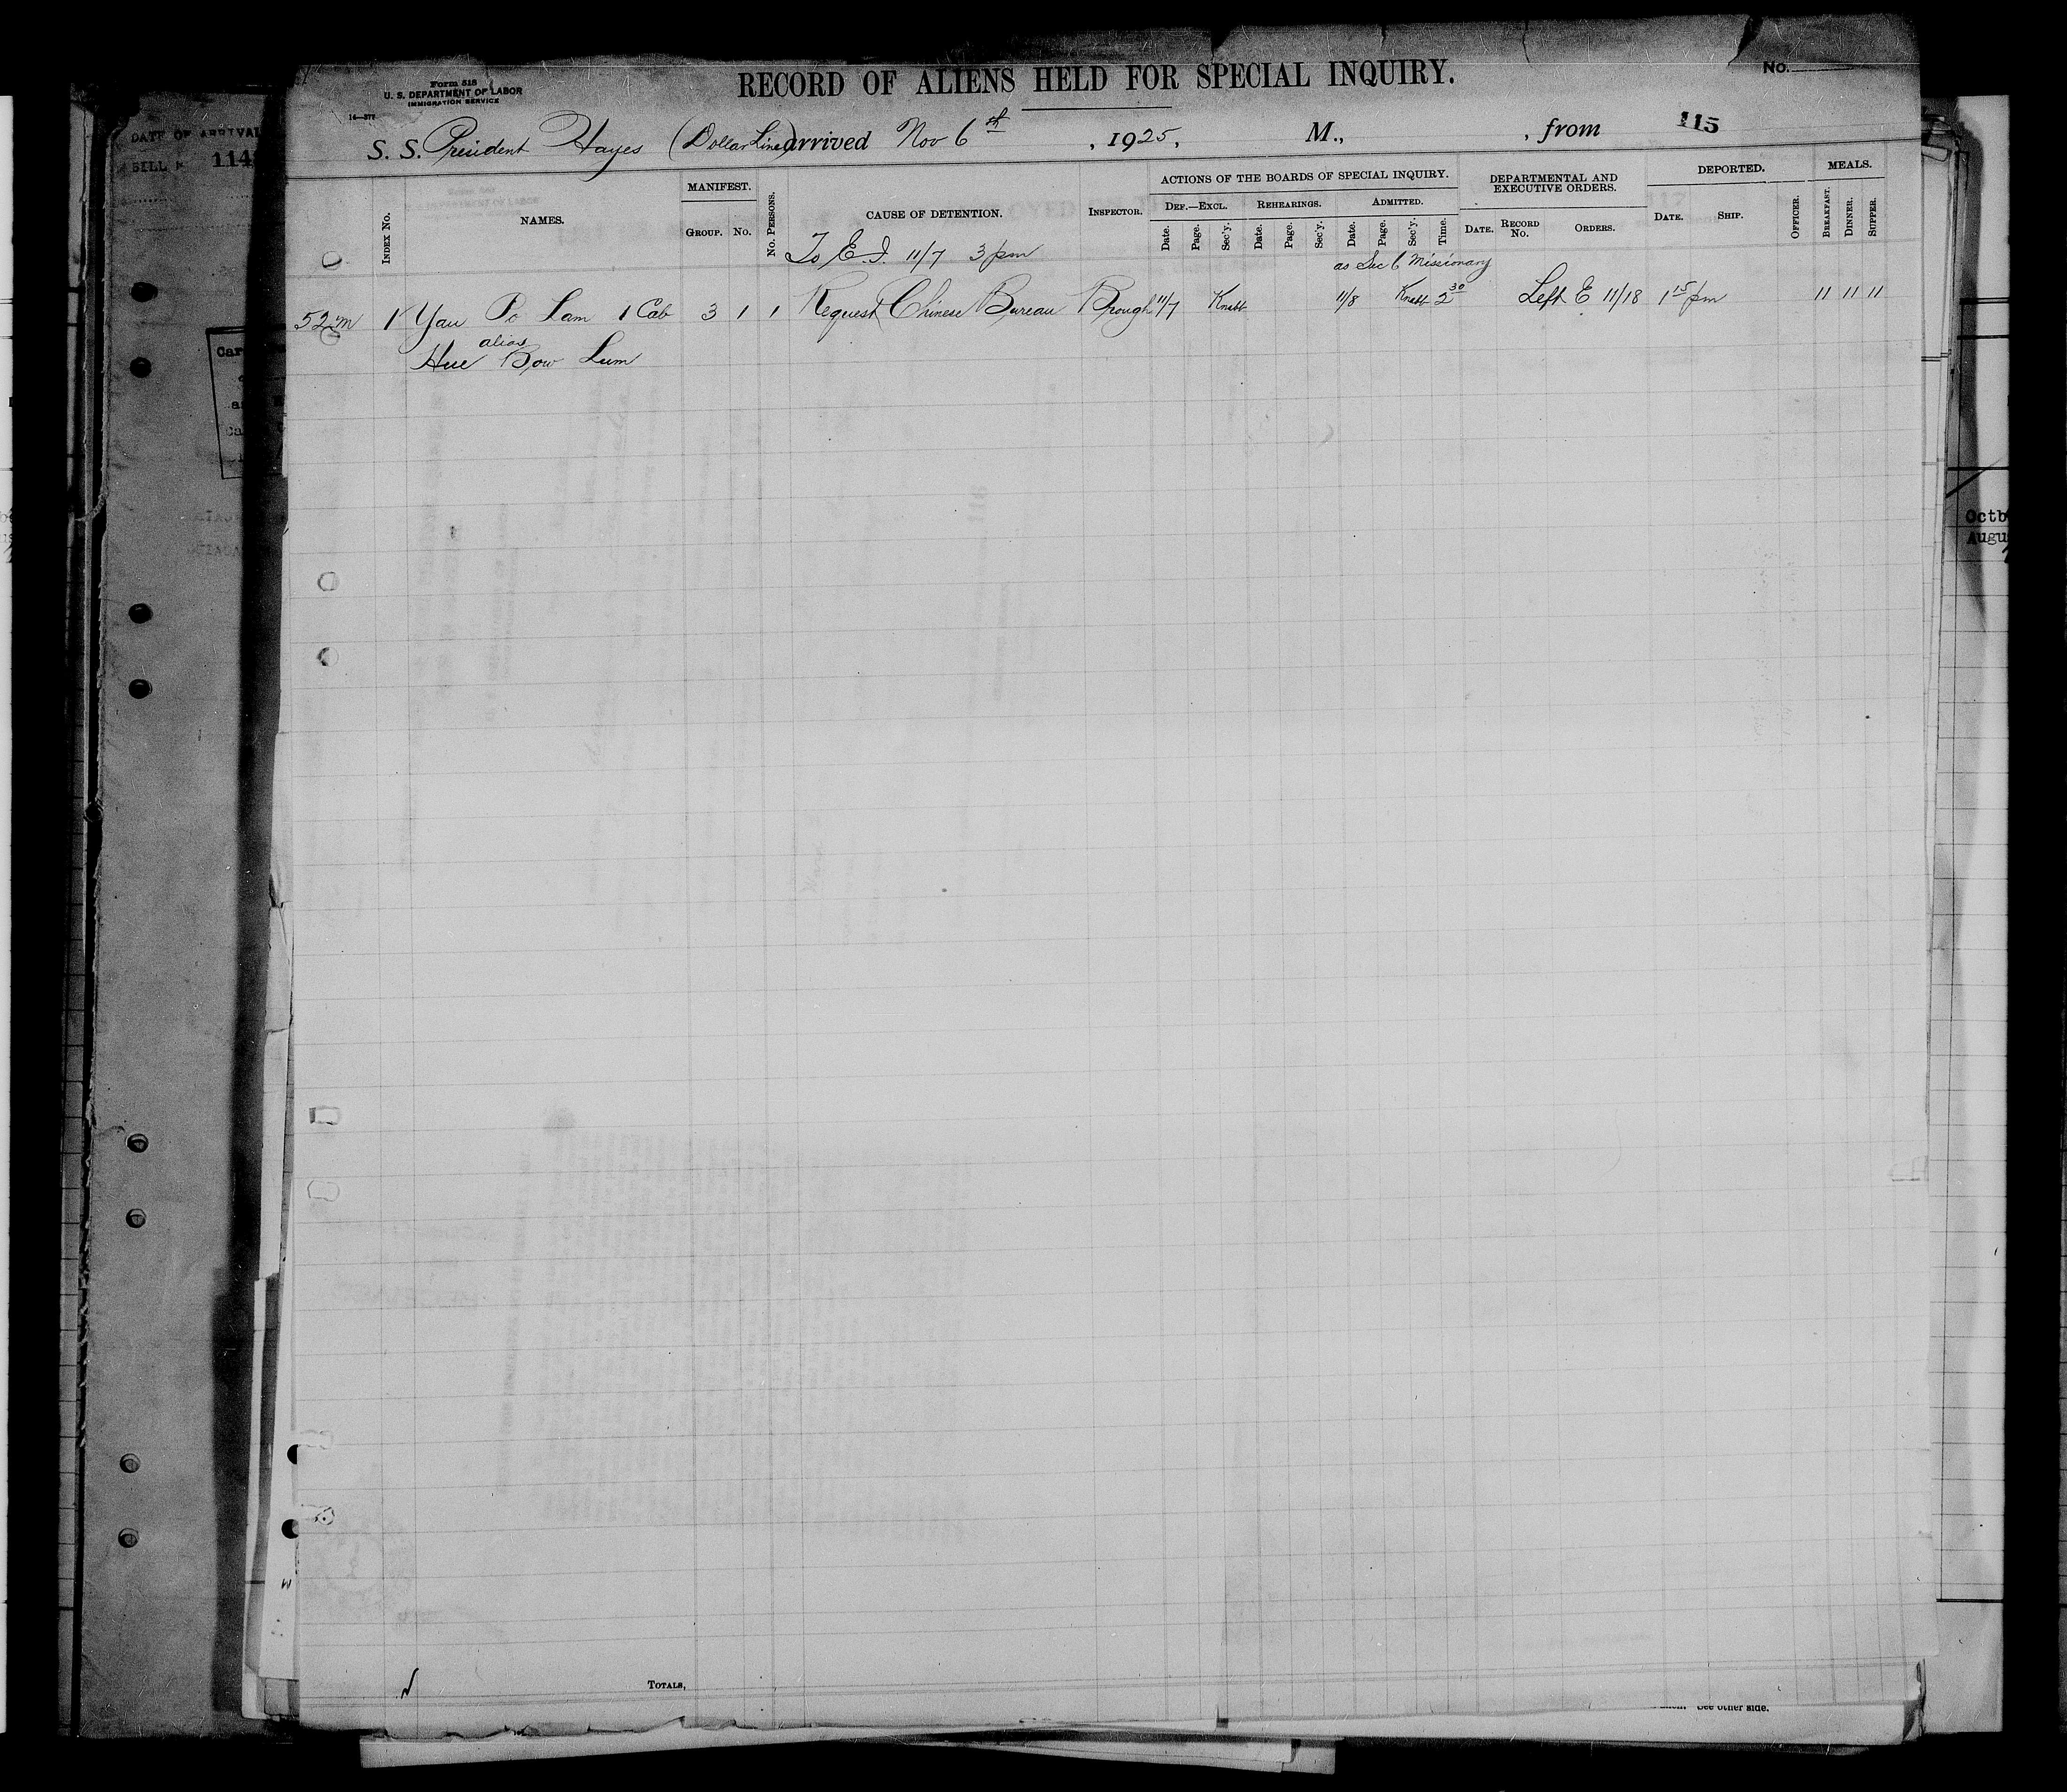 Form 518
U. S. DEPARTMENT OF LABOR
IMMIGRATION SERVICE
RECORD OF ALIENS HELD FOR SPECIAL INQUIRY.
No.
S. S. President Hayes (Dollar Line) arrived Nov 6th, 1925, M., , from 115
DATE OF ARRIVAL
114
INDEX No.
NAMES.
MANIFEST.
GROUP. No.
No. PERSONS.
CAUSE OF DETENTION.
INSPECTOR.
ACTIONS OF THE BOARDS OF SPECIAL INQUIRY.
DEF.—EXCL. REHEARINGS. ADMITTED.
Date. Page. Sec'y. Date. Page. Sec'y. Date. Page. Sec'y. Time.
DEPARTMENTAL AND EXECUTIVE ORDERS.
DATE. RECORD No. ORDERS.
DEPORTED.
DATE. SHIP.
OFFICER.
MEALS.
BREAKFAST. DINNER. SUPPER.
To E.I. 11/7 3 pm
as Sec 6 Missionary
52 m 1 Yau Po Lam 1 Cab 3 1 1 Request Chinese Bureau Brough 11/7 Knabt 11/8 Knabt 2 30 Left E 11/18 1 15 pm 11 11 11
alias
Hue Bow Lum
Octb
Augu
TOTALS,
See other side.